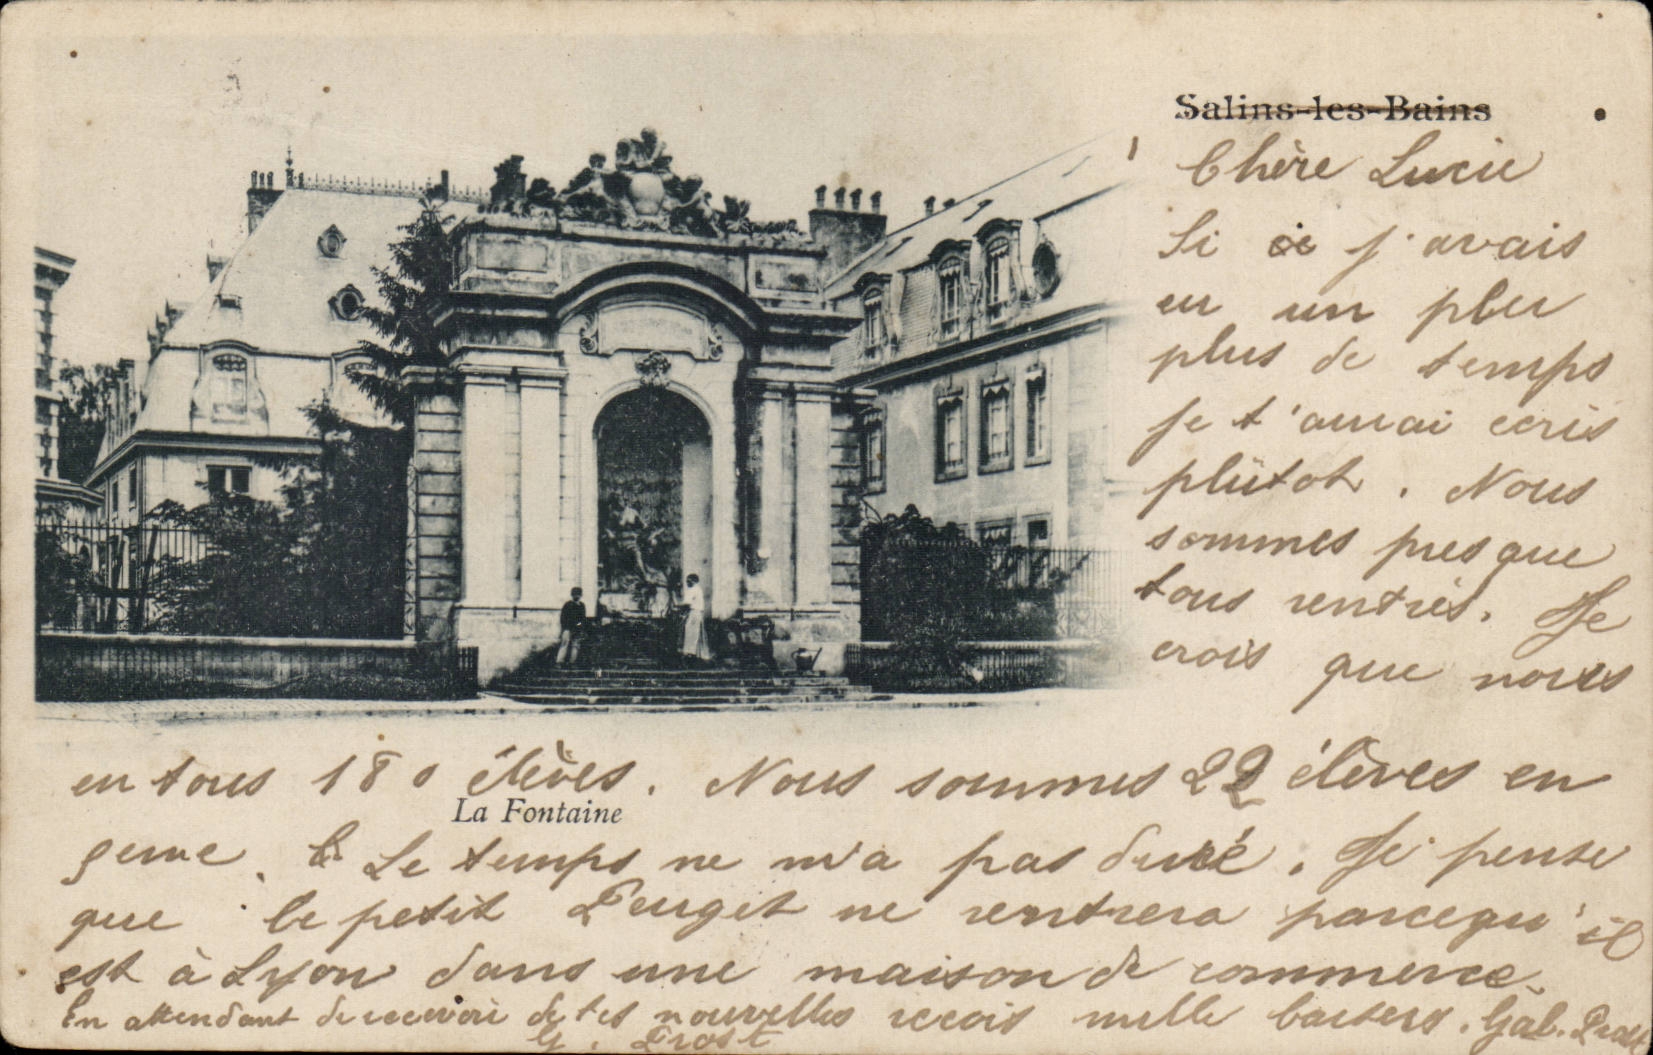 Salins-les-Bains
Chère Lucie
Si j'avais
eu un
plus de temps
je t'aurai ecris
plütot. Nous
sommes presque
tous rentrés. Je
crois que nous
en tous 180 élèves. Nous sommes 22 élèves en
La Fontaine
5eme. Le temps ne m'a pas duré. Je pense
que le petit ne rentrera parcequ'il
est à Lyon dans une maison de commerce.
En attendant de recevoir de tes nouvelles recois mille baisers. Gab. Prost
G. Prost